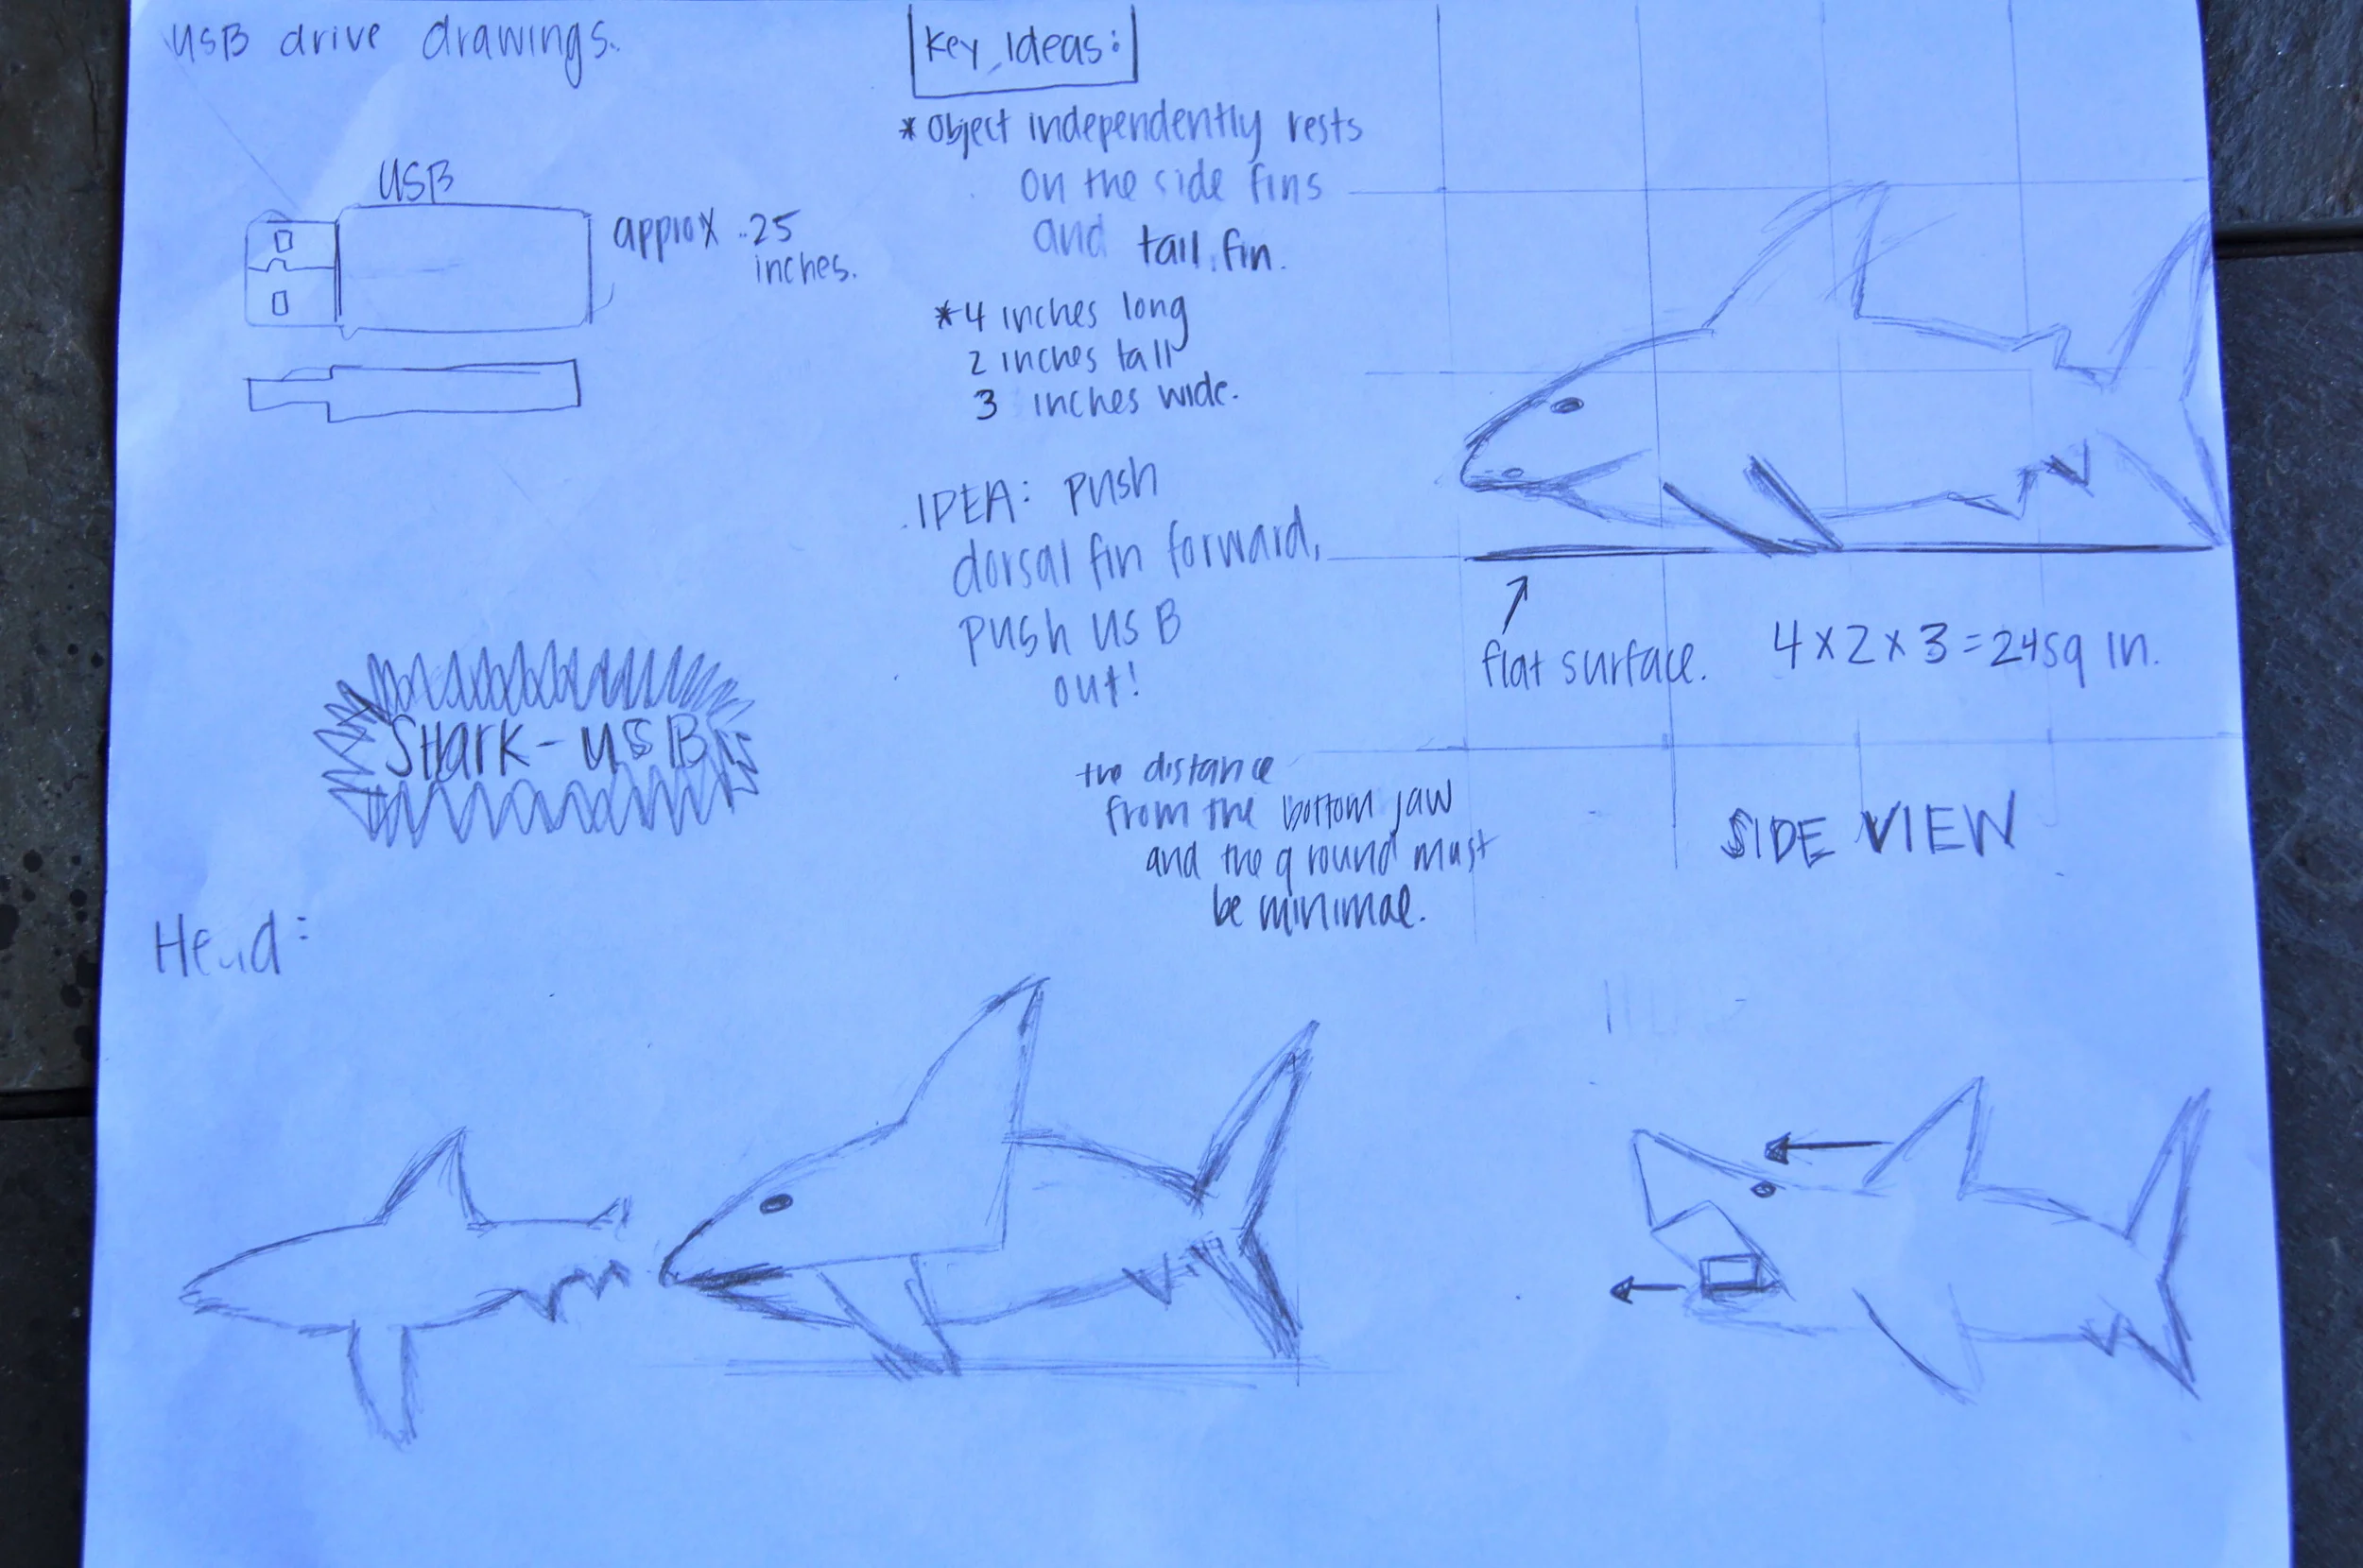 USB drive drawings.
USB
approx .25
inches.
Key Ideas:
* Object independently rests
on the side fins
and tail fin.
* 4 inches long
2 inches tall
3 inches wide.
IDEA: Push
dorsal fin forward,
push USB
out!
the distance
from the bottom jaw
and the ground must
be minimal.
flat surface.
4 x 2 x 3 = 24 sq in.
SIDE VIEW
SHark - USB
Head: